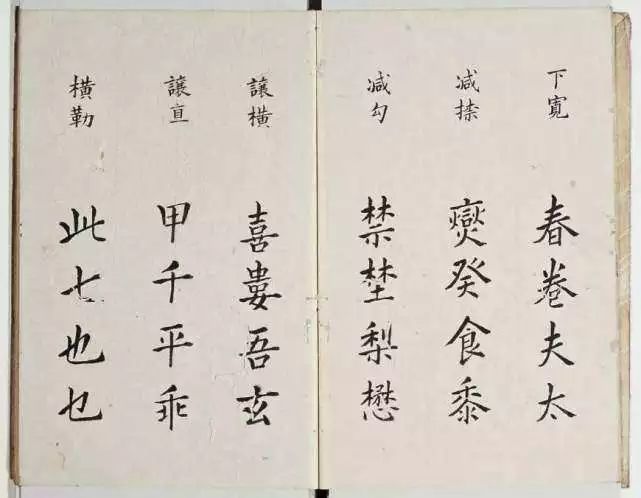 下寬
春卷夫太
减捺
爕癸食黍
减勾
禁埜梨懋
讓橫
喜婁吾玄
讓直
甲千平乖
橫勒
此七也乜